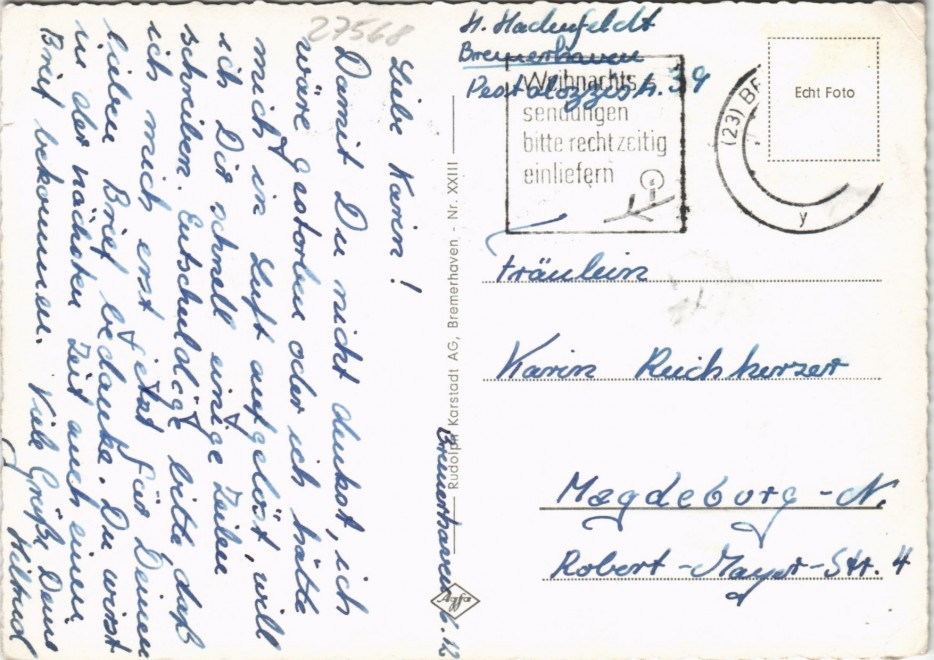 27568
H. Hadenfeldt
Bremerhaven
Pestalozzistr. 39
Weihnachts-
sendungen
bitte rechtzeitig
einliefern
(23) BR
y
Echt Foto
Liebe Karin!
Damit Du nicht denkst, ich
wäre gestorben oder ich hätte
mich in Luft aufgelöst, will
ich Dir schnell einige Zeilen
schreiben. Entschuldige bitte daß
ich mich erst jetzt für Deinen
lieben Brief bedanke. Du wirst
in der nächsten Zeit auch einen
Brief bekommen. Viele Grüße Deine
Hiltrud
Bremerhaven 6.12
Rudolph Karstadt AG, Bremerhaven - Nr. XXIII
Agfa
Fräulein
Karin Reichherzer
Magdeburg-N.
Robert-Mayer-Str. 4